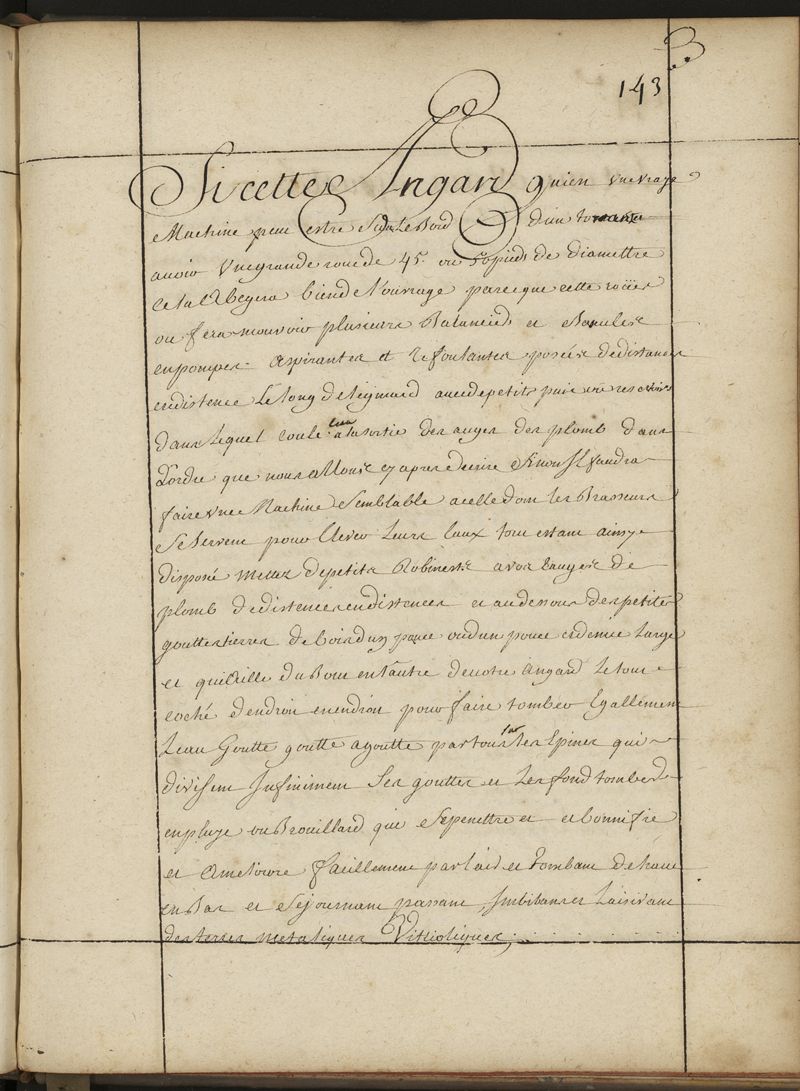 143
Si cette Angard quien vnevraye
Machine peut estre Sur Le Bord d'un torrant
avoir vnegrande roue de 45. ou 50 pieds de diamettre
cela l'Abegera biende l'ouvrage parceque cette roüe
ou fera mouvoir plusieurs Balanciers et Bascules
enpompes aspirantes et refoulantes posées dedistances
endistence Le long de avecdepetits puis ou reservoirs
dans Lequel coule l'eau alasortie des auges des plomb dans
L'ordre que nous allons cy apres decrire Sinon Il faudra
faire vne Machine Semblable acelle dont les Brasseurs
Se Servent pour Elever Leurs Eaux tout estant ainsy
disposé mettez depetits Robinets a vos auges de
plomb dedistences endistences et audessous despetites
gouttestierres de bois d'un pouce oud'un pouce etdemie Large
et du Bout en l'autre denotre angard Letout
coché dendroit enendroit pour faire tomber Egallement
L'eau Goutte goutte agoutte partout sur les Epines qui
divisent Infiniment Ses gouttes et Lesfond tomber
enpluye ou Brouillard qui Sepenettre et et bonnifie
et Ameliore facillement par l'air et tombant dehaut
en Bas et Sejournant passant, Imbibant et Laisivant
des terres metaliques Vitrioliques,